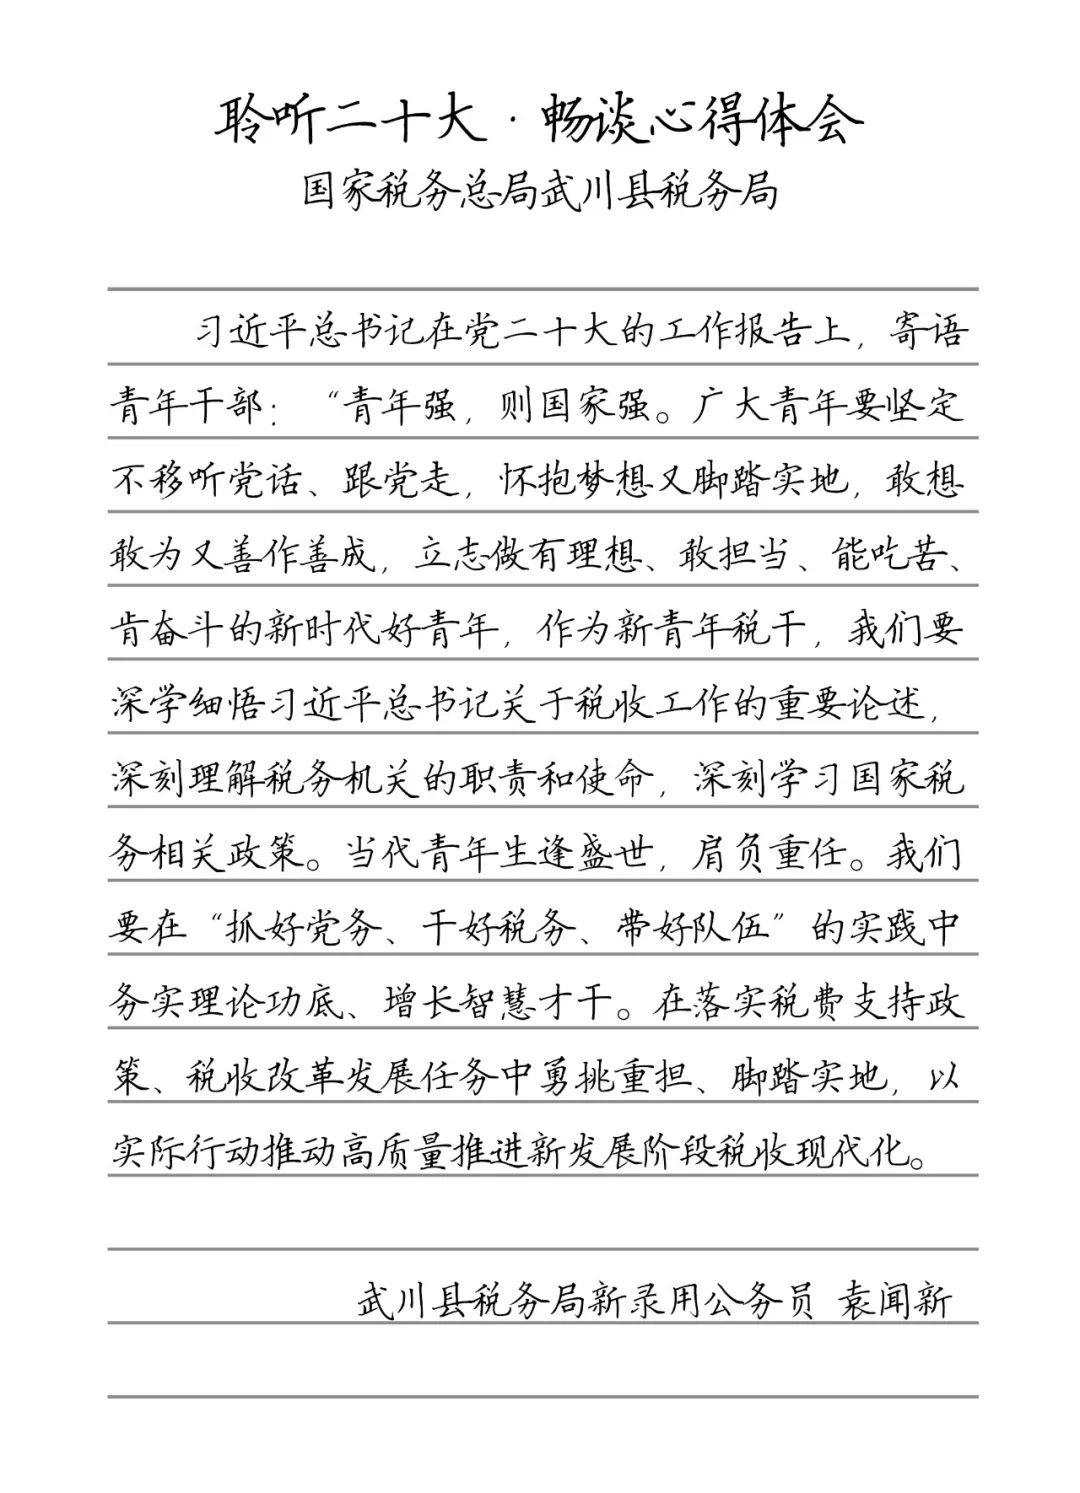 聆听二十大·畅谈心得体会
国家税务总局武川县税务局
习近平总书记在党二十大的工作报告上，寄语
青年干部：“青年强，则国家强。广大青年要坚定
不移听党话、跟党走，怀抱梦想又脚踏实地，敢想
敢为又善作善成，立志做有理想、敢担当、能吃苦、
肯奋斗的新时代好青年，作为新青年税干，我们要
深学细悟习近平总书记关于税收工作的重要论述，
深刻理解税务机关的职责和使命，深刻学习国家税
务相关政策。当代青年生逢盛世，肩负重任。我们
要在“抓好党务、干好税务、带好队伍”的实践中
务实理论功底、增长智慧才干。在落实税费支持政
策、税收改革发展任务中勇挑重担、脚踏实地，以
实际行动推动高质量推进新发展阶段税收现代化。
武川县税务局新录用公务员 袁闻新